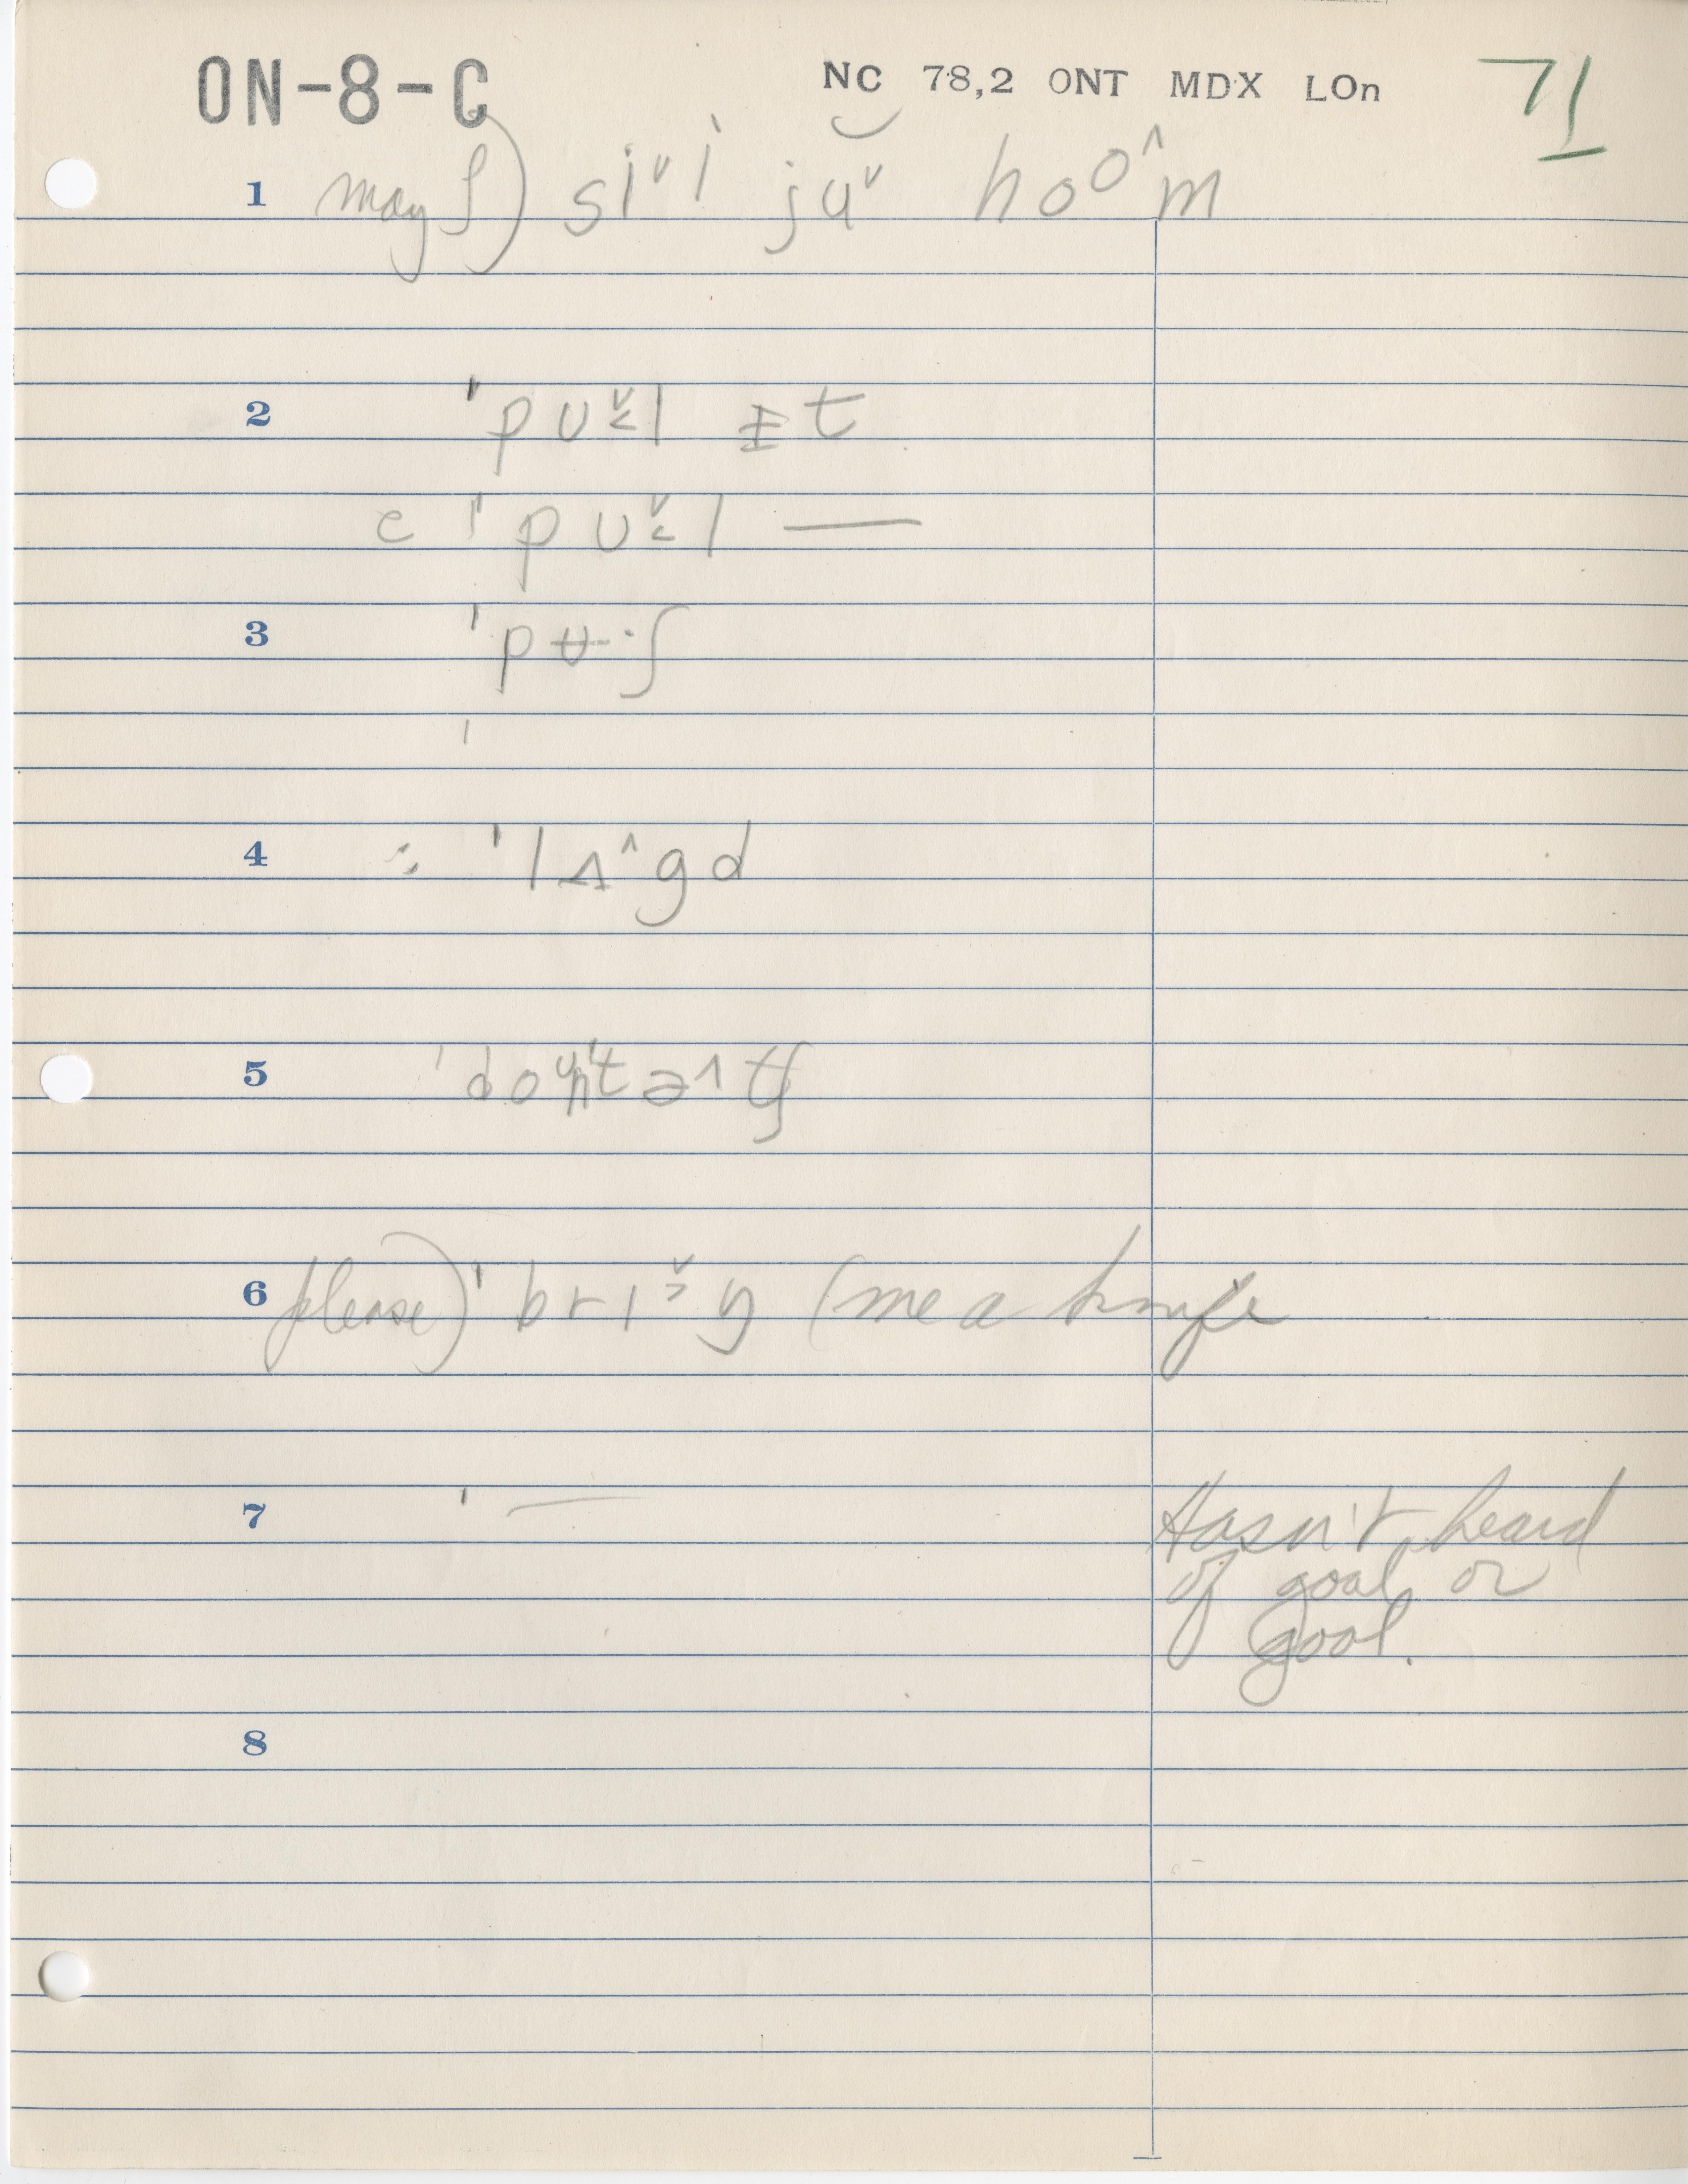 ON-8-C NC 78,2 ONT MDX LOn 71
1 may I) siˇi juˇ hoo^m
2 ˈpʊˇ̱l ɪt
c ˈpʊˇ̱l —
3 ˈpʉ·ʃ
4 ˈlʌ^gd
5 ˈdoʊntə^tʃ
6 please) ˈbrɪˇŋ (me a knife
7 ˈ — Hasn't heard
of goal or
gool.
8